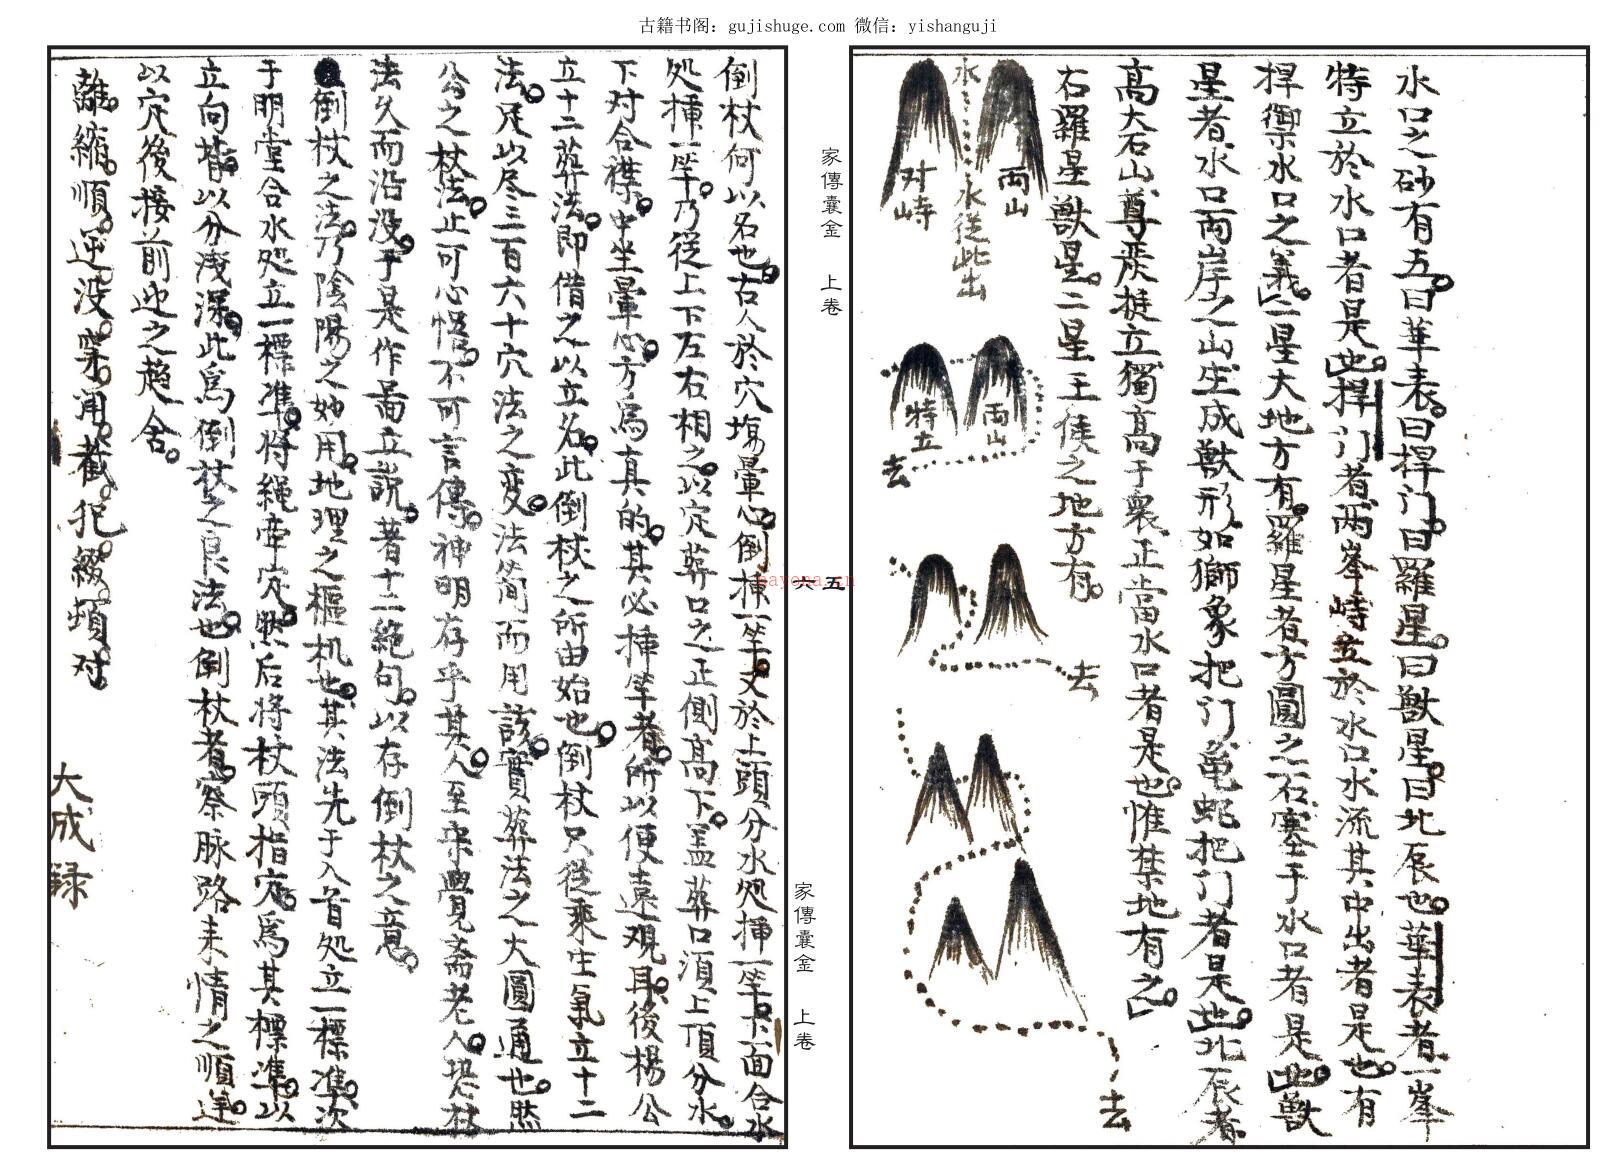 古籍书阁：gujishuge.com 微信：yishanguji
水口之砂有五曰華表曰捍门曰羅星曰獸星曰北辰也華表者一峯
特立於水口者是也捍门者兩峯峙立於水口水流其中出者是也有
捍禦水口之義二星大地方有羅星者方圓之石塞于水口者是也獸
星者水口兩岸之山生成獸形如獅象把门龜蛇把门者是也北辰者
高大石山尊严挺立獨高于衆正當水口者是也惟禁地有之
右羅星獸星二星王侯之地方有
兩山
对峙
水
水從此出
兩山
特立
去
去
去
家傳囊金 上卷
五
六
家傳囊金 上卷
nayona.cn
倒杖何以名也古人於穴塲暈心倒棟一竿又於上頭分水処揷一竿下面合水
処揷一竿乃從上下左右相之以定葬口之正側高下盖葬口湏上頂分水
下对合襟中坐暈心方爲真的其必揷竿者所以便遠觀耳後楊公
立十二葬法即借之以立名此倒杖之所由始也倒杖只從乘生氣立十二
法足以尽三百六十穴法之变法简而用該實葬法之大圓通也然
公之杖法止可心悟不可言傳神明存乎其人至宋興覺斋老人恐杖
法久而沿没于是作啚立説著十二絶句以存倒杖之意
倒杖之法乃陰陽之妙用地理之樞机也其法先于入首処立一標準次
于明堂合水処立一標準将繩牽定然后将杖頭指定爲其標準以
立向皆以分浅深此爲倒杖之良法也倒杖者察脉路来情之順逆
以定後接前迎之趋舍
離縮順逆没穿闬截犯綴頓对
大成録